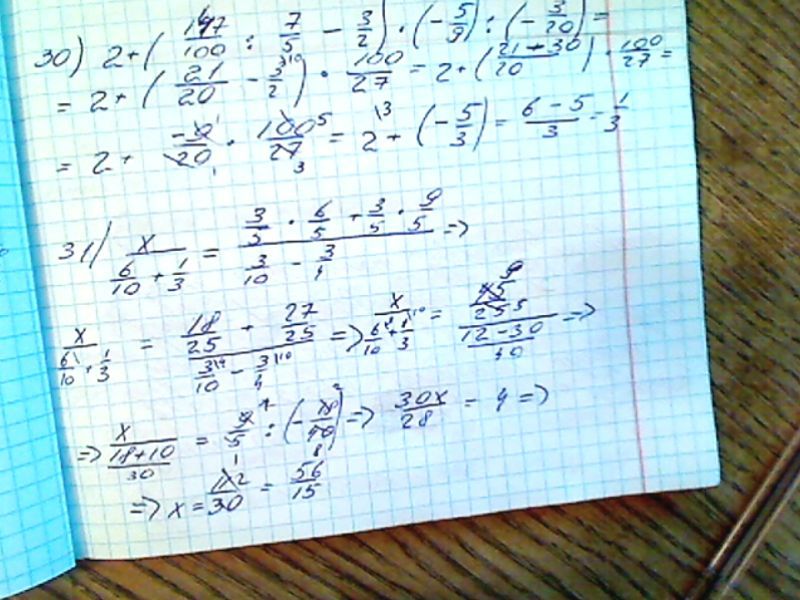 30) 2+(147/100 : 7/5 − 3/2)·(−5/9):(−3/20)=
= 2+(21/20 − 3/2 \10)·100/27 = 2+((21+30)/20)·100/27=
= 2+ −9/20 · 100 5/27 3 = 2 \3 + (−5/3) = (6−5)/3 = 1/3
31) x/(6/10+1/3) = (3/5·6/5+3/5·9/5)/(3/10−3/4) =>
x/(6/10+1/3) = (18/25+27/25)/(3/10 \4 − 3/4 \10) => x/(6/10+1/3 \10) = (45 9/25 5)/((12−30)/40) =>
=> x/((18+10)/30) = 9/5 : (−18 2/40 8) => 30x/28 = 4 =>
=> x = 112/30 = 56/15